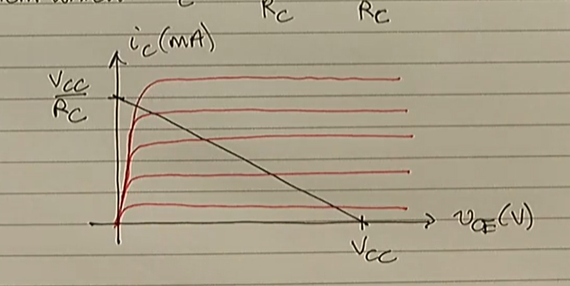 C Rc Rc
ic (mA)
Vcc
Rc
vCE (V)
Vcc